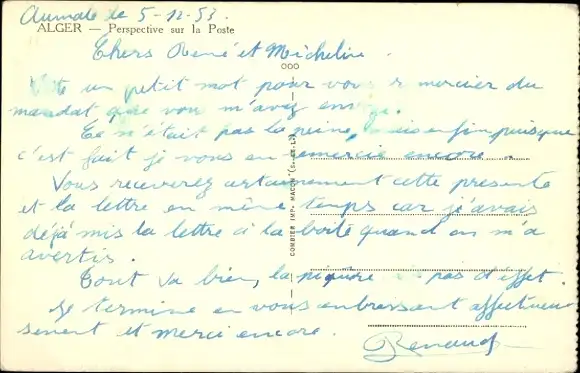 Aumale le 5-12-53.
ALGER — Perspective sur la Poste
Chers René et Micheline.
Vite un petit mot pour vous remercier du
mandat, que vous m'avez envoyé.
Ce n'était pas la peine, mais enfin, puisque
c'est fait je vous en remercie encore.
Vous recevrez certainement cette présente
et la lettre en même temps car j'avais
déjà mis la lettre à la boîte quand on m'a
averti.
Tout va bien, la piqûre pas d'effet.
Je termine en vous embrassant affectueu-
sement et merci encore.
Renaud
COMBIER IMP. MACON